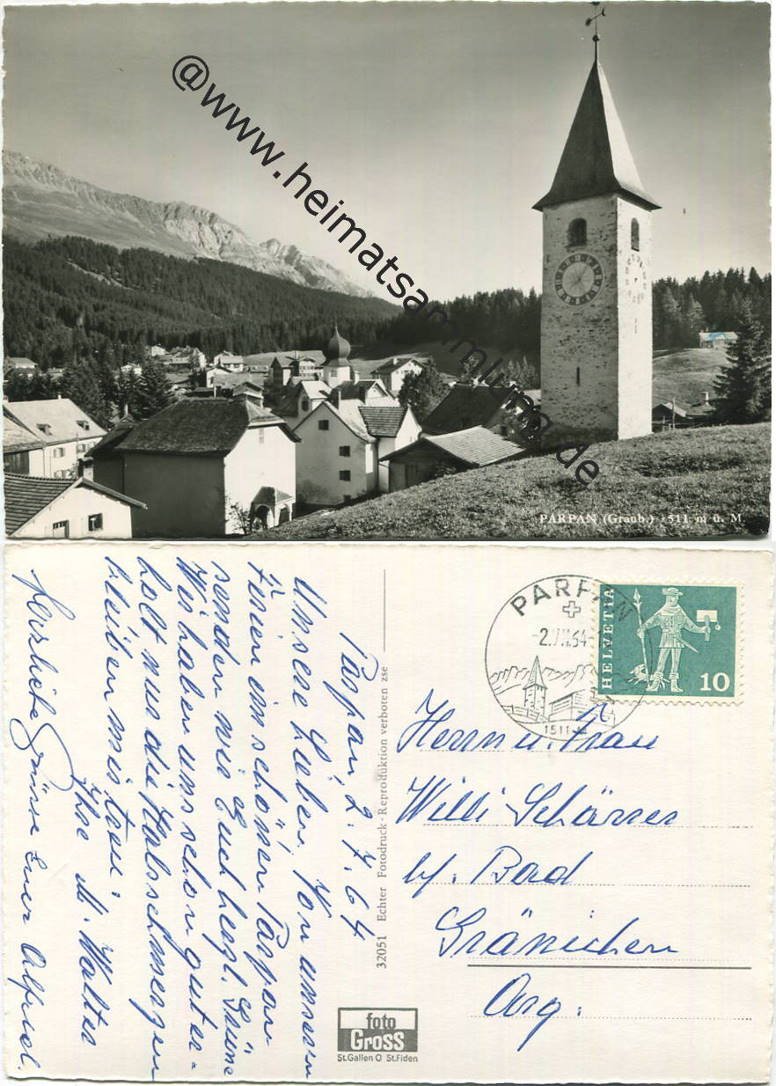 @www.heimatsammlung.de
PARPAN (Graub.) 1511 m ü. M.
Parpan, 2. 7. 64
Unsere Lieben, Von unseren
Ferien im schönen Parpan
senden wir Euch herzl. Grüsse
Wir haben uns schon gut er-
holt nur die Halsschmerzen
bleiben mir treu.
Ihre M. Walter
Herzliche Grüsse Euer Alfred.
32051 Echter Fotodruck - Reproduktion verboten zse
foto
Gross
St.Gallen O St.Fiden
PARPAN
1511
HELVETIA
10
Herrn u. Frau
Willi Schärrer
bf. Bad
Gränichen
Arg.